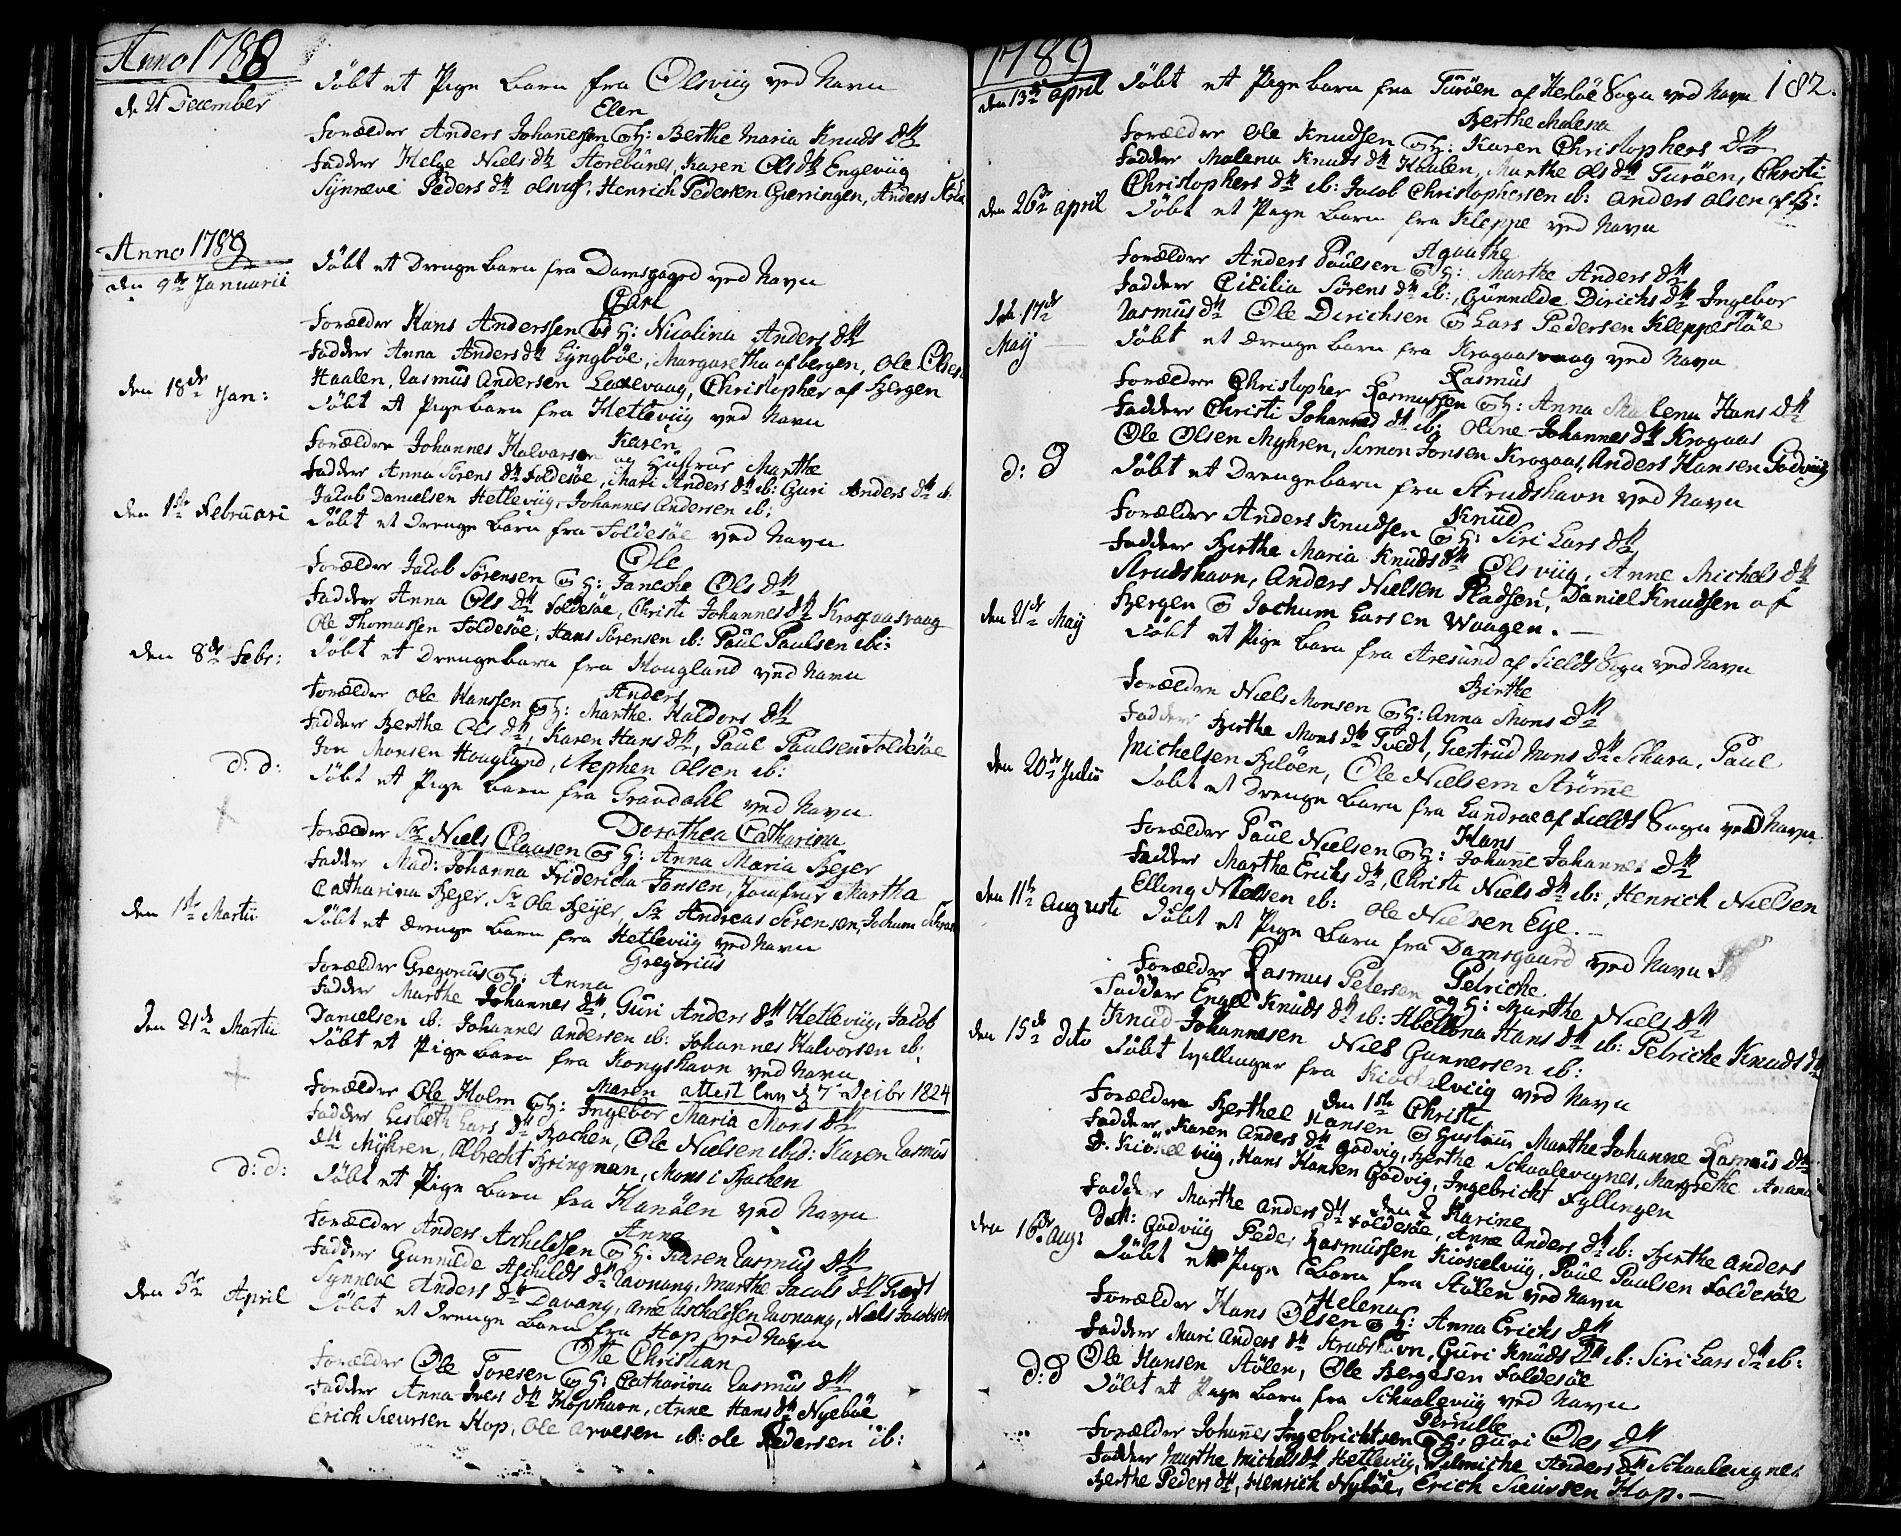 Anno 1788
d. 21 December
Döbt et Pige barn fra Olsviig ved Navn
Elen
Forældre Anders Johanessen og H: Berthe Maria Knuds dtr
Fadder Helge Niels dtr Storebunes, Karen Ols dtr Engeviig
Synneve Peders dtr olsvig, Henrich Pedersen Gierringen, Anders
Anno 1789
den 9de Januarii
Döbt et Drenge barn fra Damsgagrd ved Navn
Carl
Forælder Hans Anderssen og H: Nicolina Anders dtr
Fadder Anna Anders dtr Lyngböe, Margaretha af bergen, Ole Olsen
Haalen, Rasmus Andersen Laxevaag, Christopher af Bergen
den 18de Jan:
Döbt et Pige barn fra Hetleviig ved Navn
Karen
Forældre Johannes Halvorsen og Hustrue Marthe
Fadder Anna Sörens dtr Foldesöe, Mari Anders dtr ib: Guri Anders dtr ib:
Jacob Danielsen Hetleviig, Johannes Andersen ib:
den 1ste Februari
Döbt et Drenge barn fra Foldesöe ved Navn
Ole
Forælder Jacob Sörensen og H: Janeche Ols dtr
Fadder Anna Ols dtr Foldesöe, Christi Johannes dtr Krogaasvaag
Ole Thomassen Foldesöe, Hans Sörensen ib: Paul Paulsen ib:
den 8de Febr:
Döbt et Drengebarn fra Hougland ved Navn
Anders
Forælder Ole Hanssen og H: Marthe Haldors dtr
Fadder Berthe Ols dtr, Karen Hans dtr, Paul Paulsen Foldesöe
Jon Monsen Hougland, Stephen Olsen ib:
d: d:
Döbt et Pige barn fra Gravdahl ved Navn
Dorothea Catharina
Forælder Sr Niels Clausen og H: Anna Maria Bejer
Fadder Mad: Johanna Friderica Jansen, Jomfrue Martha
Catharina Bejer, Sr Ole Beijer, Sr Andreas Sörensen, Jochum
den 1ste Martii
Döbt et Drenge barn fra Hetleviig ved Navn
Gregorius
Forælder Gregorius og H: Anna
Fadder Marthe Johannes dtr, Guri Anders dtr Hetleviig, Jacob
Danielsen ib: Johannes Andersen ib: Johannes Halvorsen ib:
den 21de Martii
Döbt et Pige barn fra Kongshavn ved Navn
Maren attest den 7 Decbr 1824
Forælder Ole Holm og H: Ingebor Maria Mons dtr
Fadder Lisbeth Lars dtr Bachen, Ole Nielsen ibid: Karen Rasmus
dtr Myhren, Albrecht Bringman, Mons i Bachen
d: d:
Döbt et Pige barn fra Hanöen ved Navn
Anne
Forælder Anders Aschildsen og H: Karen Rasmus dtr
Fadder Gunnilde Aschilds dtr Ravnang, Marthe Jacobs dtr Tvedt
Synneve Anders dtr Davang, Arne Aschildsen Ravnang, Niels Jacobsen
den 5te April
Döbt et Drenge barn fra Hop ved Navn
Otte Christian
Forælder Ole Toresen og H: Catharina Rasmus dtr
Fadder Anna Ivers dtr Hophavn, Anne Hans dtr Nyeböe
Erich Sieursen Hop, Ole Arnesen ib: ole Pedersen ib:
1789
182.
den 13de April
Döbt et Pige barn fra Turöen af Herlöe Sogn ved Navn
Berthe Malena
Forælder Ole Knudsen og H: Karen Christophers dtr
Fadder Malena Knuds dtr Haalen, Marthe Ols dtr Turöen, Christi
Christophers dtr ib: Jacob Christophersen ib: Anders Olsen af B:
den 26de April
Döbt et Pige barn fra Kleppe ved Navn
Agaathe
Forælder Anders Paulsen og H: Marthe Anders dtr
Fadder Cicilia Sörens dtr ib:, Gunnilde Dirichs dtr Ingebor
Rasmus dtr Ole Dirichsen og Lars Pedersen Kleppestöe
den 17de Maij
Döbt et Drenge barn fra Krogaasvaag ved Navn
Rasmus
Forælder Christopher Rasmussen og H: Anna Malena Hans dtr
Fadder Christi Johannes dtr ib: Oline Johannes dtr Krogaas
Ole Olsen Myhren, Simon Jonsen Krogaas, Anders Hansen Godviig
d: d
Döbt et Drengebarn fra Strudshavn ved Navn
Knud
Forælder Anders Knudsen og H: Siri Lars dtr
Fadder Birthe Maria Knuds dtr Olsviig, Anne Michels dtr
Strudshavn, Anders Nielsen Pladsen, Daniel Knudsen af
Bergen og Jochum Larsen Waagen. —
den 21de Maij
Döbt et Pige barn fra Aresund af Fields Sogn ved Navn
Birthe
Forældre Niels Monsen og H: Anna Mons dtr
Fadder Birthe Mons dtr Tvedt, Giertrud Mons dtr Schara, Paul
Michelsen Bilöen, Ole Nielsem Strömme
den 20de Julii
Döbt et Drenge barn fra Landroe af Fields Sogn ved Navn
Hans
Forælder Paul Nielsen og H: Johanne Johannes dtr
Fadder Marthe Erichs dtr, Christi Niels dtr ib:, Henrich Nielsen
Elling Nielsen ib: Ole Nielsen Eye. —
den 11te Augusti
Döbt et Pige barn fra Damsgaard ved Navn
Petriche
Forælder Rasmus Petersen og H: Marthe Niels dtr
Fadder Engel Knuds dtr ib: Abellona Hans dtr ib: Petriche Knuds dtr
Knud Johannesen Niels Gunnersen ib:
den 15de dito
Döbt tvillinger fra Kiochelviig ved Navn
den 1ste Christi
Forældere Berthel Hansen og Hustrue Marthe Johanne Rasmus dtr
Fadder Karen Anders dtr Godvig, Berthe Schaalevignes, Margrethe
Hans Hansen Godvig, Ingebricht Fyllingen
den 2 Karine
Fadder Marthe Anders dtr Foldesöe, Anne Anders dtr ib: Berthe Anders
Datt: Godviig Peder Rasmussen Kiöchelviig, Paul Paulsen Foldesöe
den 16de Aug:
Döbt et Pige barn fra Stölen ved Navn
Helena
Forælder Hans Olsen og H: Anna Erichs dtr
Fadder Mari Anders dtr Strudshavn, Guri Knuds dtr ib: Siri Lars dtr ib:
Ole Hansen Stölen, Ole Bergesen Foldesöe
d: d
Döbt et Pige barn fra Schaaleviig ved Navn
Pernille
Forælder Johanes Ingebrichtsen og H: Guri Ols dtr
Fadder Marthe Michels dtr Hetleviig, Anders dtr Schaalevignes
Berthe Peders dtr, Henrich Nyböe, Erich Sieursen Hop. —